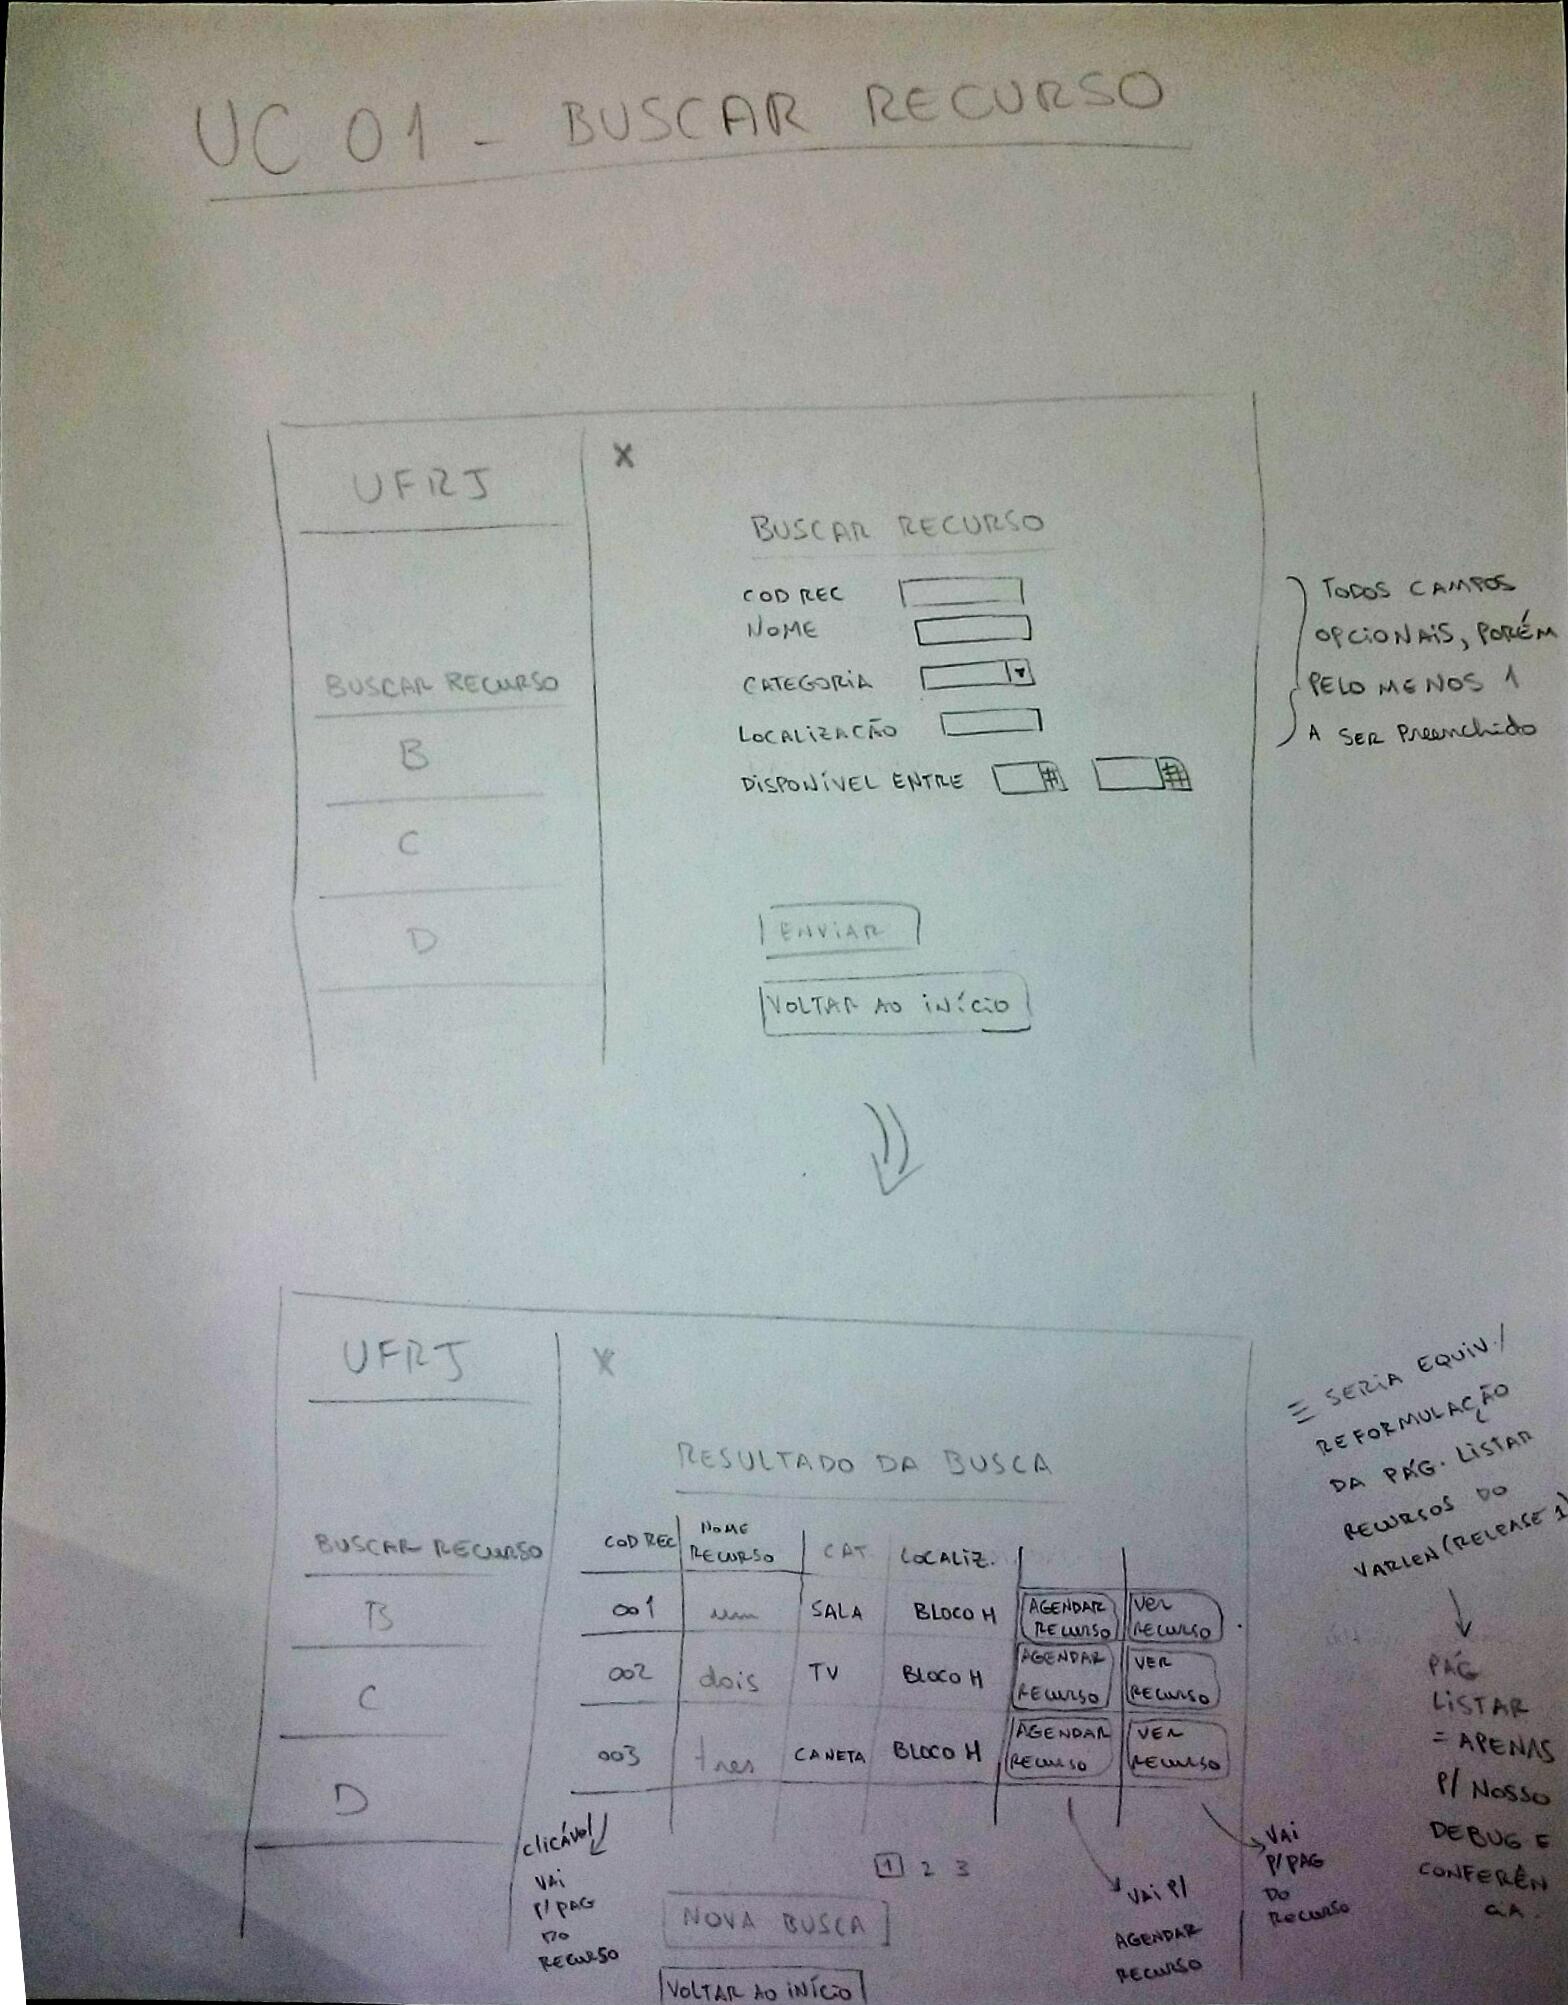 UC 01 - BUSCAR RECURSO
UFRJ
X
BUSCAR RECURSO
COD REC
NOME
CATEGORIA
LOCALIZAÇÃO
DISPONÍVEL ENTRE
TODOS CAMPOS
OPCIONAIS, PORÉM
PELO MENOS 1
A SER Preenchido
BUSCAR RECURSO
B
C
D
ENVIAR
VOLTAR AO INÍCIO
UFRJ
X
RESULTADO DA BUSCA
BUSCAR RECURSO
B
C
D
COD REC NOME RECURSO CAT. LOCALIZ.
001 um SALA BLOCO H AGENDAR RECURSO VER RECURSO
002 dois TV BLOCO H AGENDAR RECURSO VER RECURSO
003 tres CANETA BLOCO H AGENDAR RECURSO VER RECURSO
clicável
VAI
P/ PAG
DO
RECURSO
1 2 3
NOVA BUSCA
VOLTAR AO INÍCIO
VAI P/
AGENDAR
RECURSO
VAI
P/ PAG
DO
RECURSO
≡ SERIA EQUIV./
REFORMULAÇÃO
DA PÁG. LISTAR
RECURSOS DO
VARLEN (RELEASE 1)
PÁG
LISTAR
= APENAS
P/ NOSSO
DEBUG E
CONFERÊN
CIA.